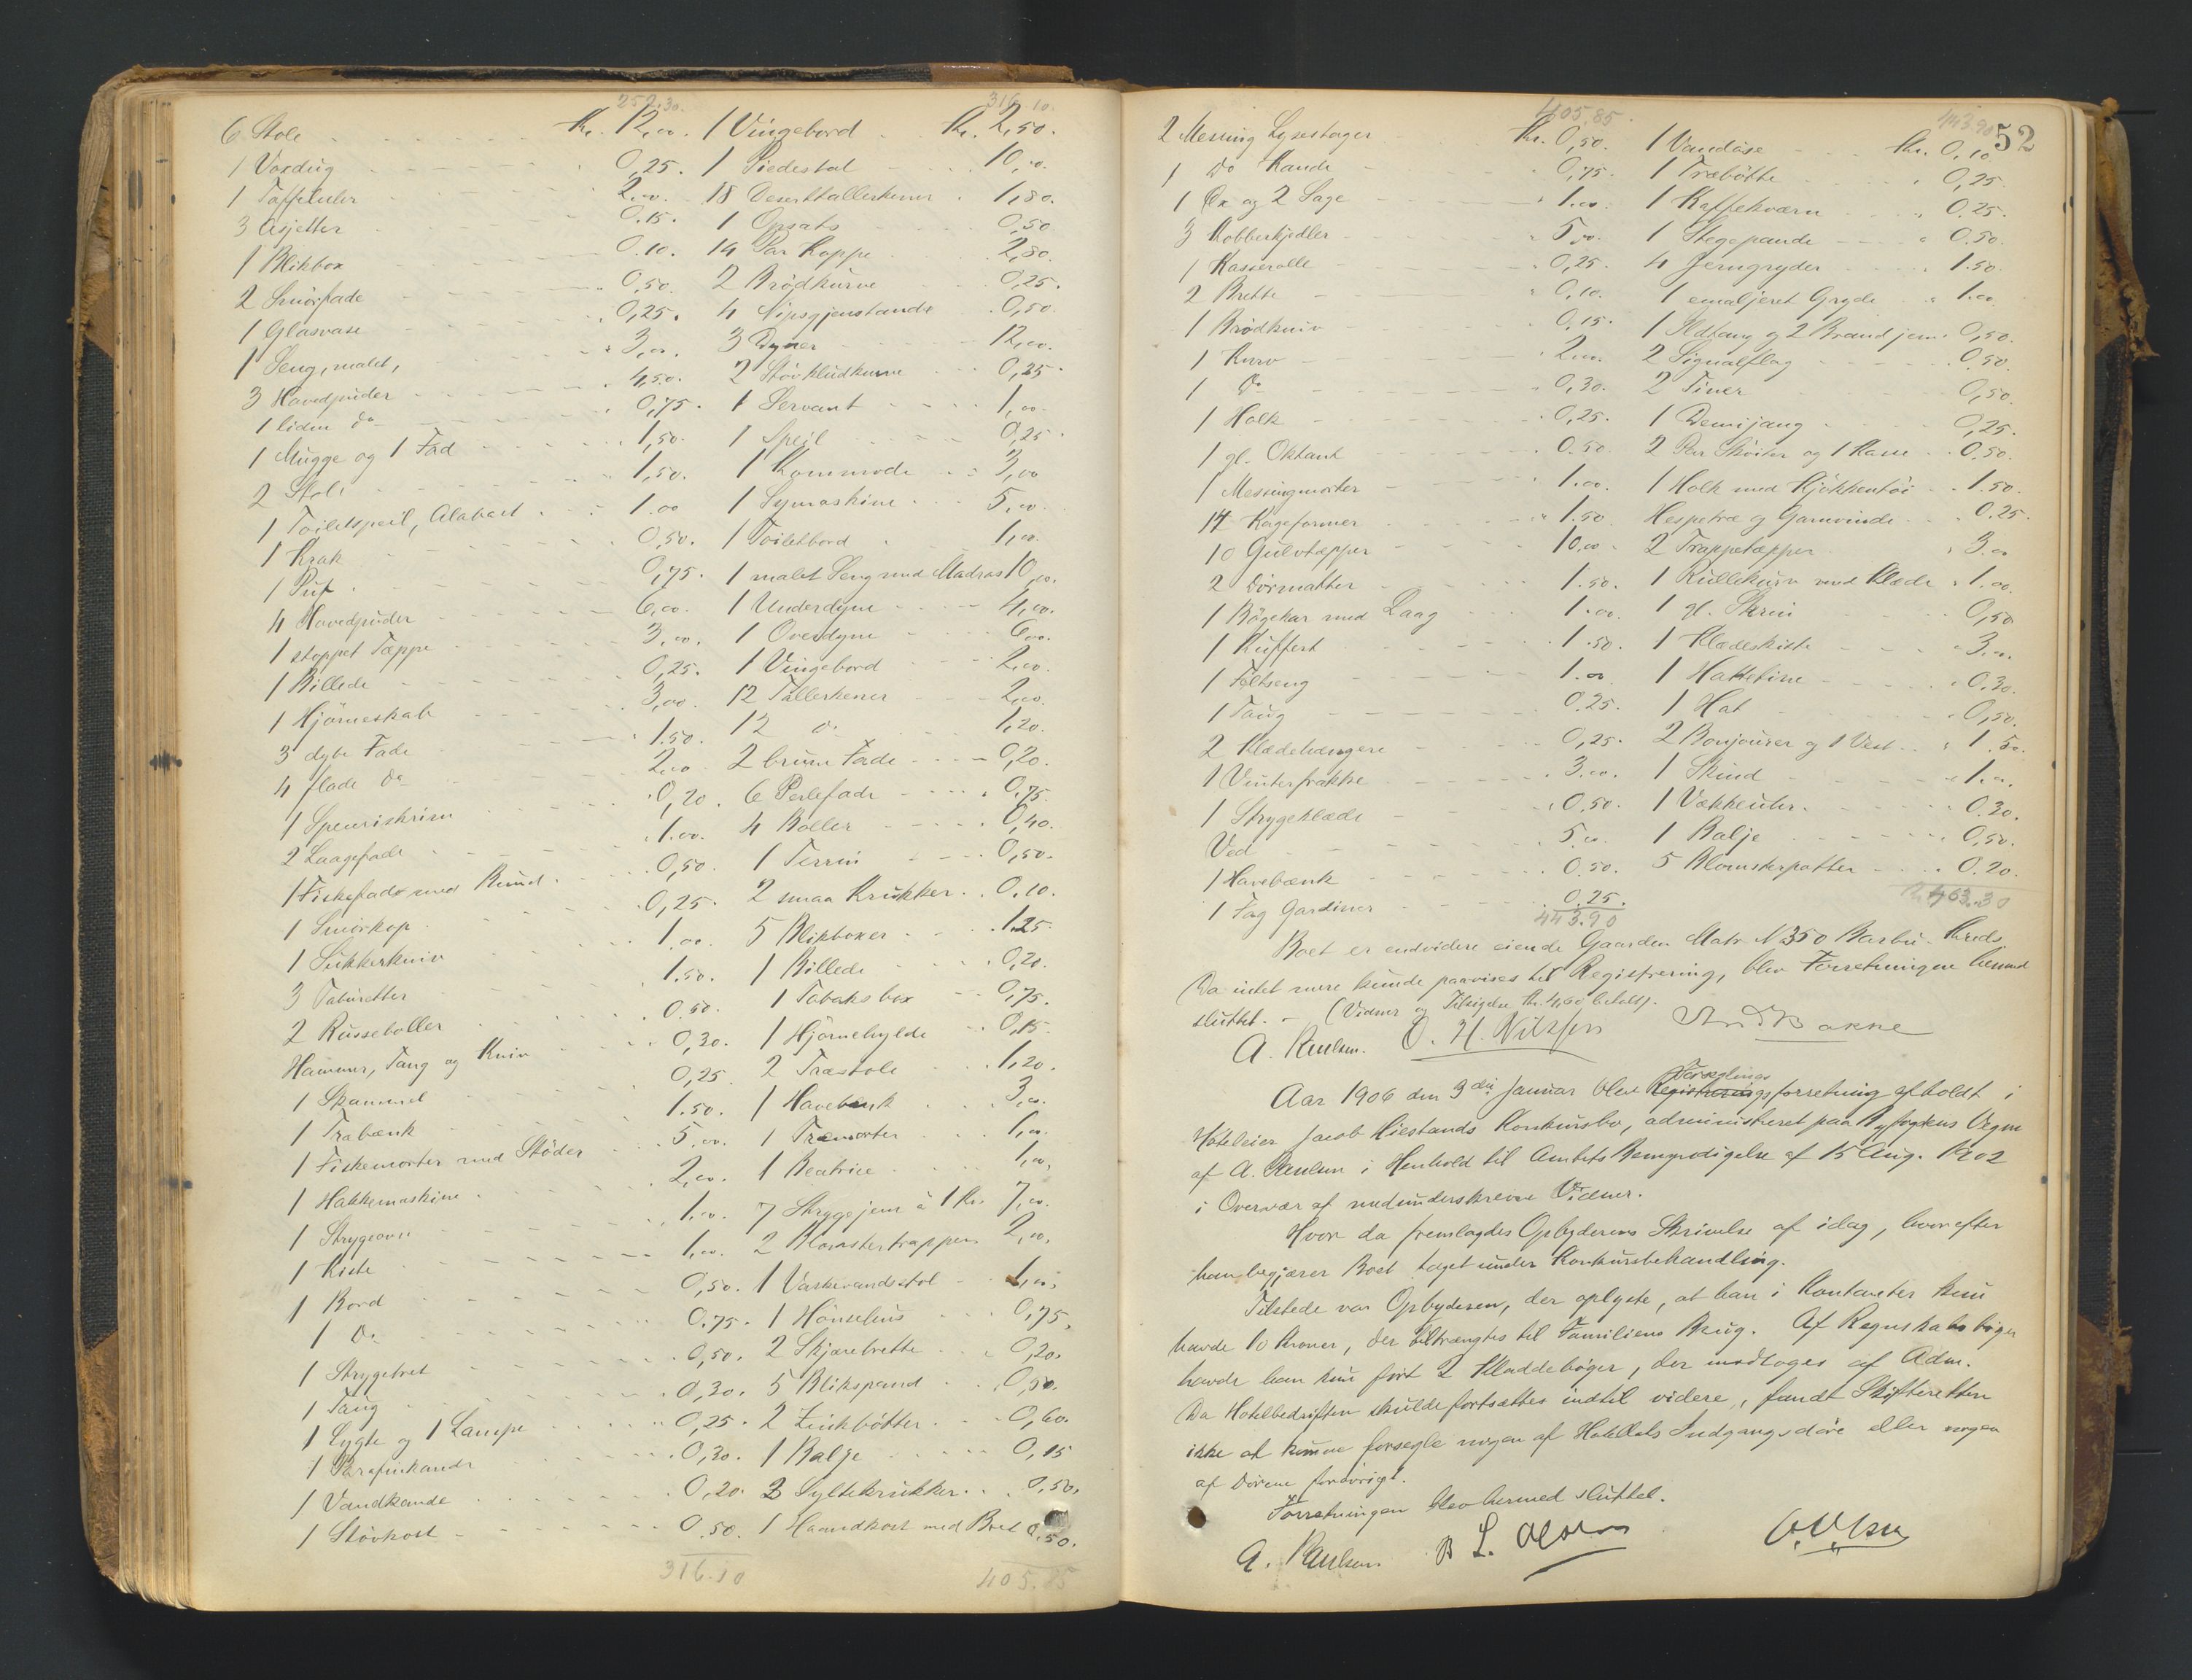 252.30.
6 Stole Kr. 12,00.
1 Voxdug 0,25.
1 Taffeluler 2,00.
3 Asjetter 0.15.
1 Blikbox 0.10.
2 Smörfade 0,50.
1 Glasvase 0,25.
1 Seng, malet, 3,00.
3 Hovedpuder 4,50.
1 liden do 0,75.
1 Mugge og 1 Fad 1,50.
2 Stole 1,50.
1 Toiletspeil, Alabast 1.00
1 Krak 0,50.
1 Puf 0,75.
4 Hovedpuder 6,00.
1 stoppet Tæppe 3,00.
1 Billede 0,25.
1 Hjörneskab 3,00.
3 dybe Fade 1.50.
4 flade do 2,00
1 0,20.
2 Laagefade 1.00.
1 Fiskefad med Rund 0,50.
1 Smörkop 0,25.
1 Sukkerkniv 1,00.
3 Taburetter 1.50.
2 Russeboller 0.50.
Hammer, Tang og Kniv 0,30.
1 Skammel 0,25
1 Træbænk 1.50.
1 Fiskemorter med Stöder 5,00.
1 Hakkemaskine 2,00.
1 Strygeovn 1,00.
1 Kiste 1,00.
1 Bord 0,50.
1 Do 0.75.
1 Strygebret 0,50.
1 Taug 0,30.
1 Lygte og 1 Lampe 0,25.
1 Parafinkande 0,30.
1 Vandkande 0,20.
1 Stövkost 0.50.
316.10
316.10.
1 Vingebord Kr. 2,50.
1 Piedestal 10,00.
18 Deserttallerkener 1,80.
1 Opsats 0,50
14 Par Koppe 2,80.
2 Brödkurve 0,25.
4 Nipsgjenstande 0,50.
3 Dyner 12,00.
2 Stövkludkurve 0,25.
1 Servant 1,00.
1 Speil 0,25.
1 Kommode 3,00
1 Symaskine 5,00.
1 Toiletbord 1,00.
1 malet Seng med Madras 10,00.
1 Underdyne 4,00.
1 Overdyne 6,00.
1 Vingebord 2,00.
12 Tallerkener 2,00.
12 do 1,20.
2 brune Fade 0,20.
6 Perlefade 0,75.
4 Boller 0,40.
1 Terrin 0,50.
2 smaa Krukker 0.10.
5 Blikboxer 1.25.
1 Billede 0,20.
1 Tobaksbox 0,75.
1 Hjörnehylde 0,15.
2 Træstole 1,20.
1 Havebænk 3,00.
1 Træmorter 1,00.
1 Beatrice 1,00.
7 Strygejern à 1 Kr. 7,00.
2 Blomstertrapper 2,00.
1 Vaskevandstol 1,00.
1 Hönsehus 0,75.
2 Skjærebrette 0,20.
5 Blikspand 0,50.
2 Zinkbötter 0,60.
1 Balje 0,15
3 Syltekrukker 0,50.
1 Haandkost med Bret 0,50.
405.85
405.85.
2 Messing Lysestager Kr. 0,50.
1 Do Kande 0,75.
1 Öx og 2 Sage 1.00.
3 Kobberkjedler 5,00.
1 Kasserolle 0,25.
2 Brette 0,10.
1 Brödkniv 0,15.
1 Kurv 2,00.
1 Do 0,30.
1 Holk 0,25.
1 gl. Oktant 0.50.
1 Messingmorter 1.00.
14 Kageformer 1.50
10 Gulvtæpper 10,00
2 Dörmatter 1.50.
1 Bögekar med Laag 1.00.
1 Kuffert 1.50.
1 Feltseng 1.00
1 Taug 0.25.
2 Klædehængere 0,25.
1 Vinterfrakke 3.00.
1 Strygeklæde 0.50.
Ved 5,00.
1 Havebænk 0.50.
1 Fag Gardiner 0.25.
443.90
443.90
52
1 Vandöse Kr. 0,10
1 Træbötte 0,25.
1 Kaffekværn 0.25.
1 Stegepande 0.50.
4 Jerngryder 1.50.
1 emaljeret Gryde 1.00.
1 Ildtang og 2 Brandjern 0,50.
2 Signalflag 0.50.
2 Tiner 0,50.
1 Demijang 0,25.
2 Par Sköiter og 1 Kasse 0.50.
1 Holk med Kjökkentöi 1.50.
Hespetræ og Garnvinde 0.25.
2 Trappetæpper 3.00
1 Rullekurv med Klæde 1.00.
1 gl. Skrin 0,50
1 Klædeskiste 3.00.
1 Hattetine 0.30.
1 Hat 0,50.
2 Bonjourer og 1 Vest 1.50.
1 Skind 1.00.
1 Vækkeuhr 0.30.
1 Balje 0,50.
5 Blomsterpotter 0.20.
463.30
Boet er endvidere eiende Gaarden Matr. N. 350 Barbu-Kreds.
Da intet mere kunde paavises til Registrering, blev Forretningen hermed
sluttet. – (Vidner og Tilsigelse Kr. 4,60 betalt).
A. Paulsen. O. H. Nilssen And Bakke
Forseglings
Aar 1906 den 9de Januar blev Registreringsforretning afholdt i
Hoteleier Jacob Kiestands Konkursbo, administreret paa Byfogdens Vegne
af A. Paulsen i Henhold til Amtets Bemyndigelse af 15 Aug. 1902
i Overvær af medunderskrevne Vidner.
Hvor da fremlagdes Opbyderens Skrivelse af idag, hvorefter
han begjærer Boet taget under Konkursbehandling.
Tilstede var Opbyderen, der oplyste, at han i Kontanter kun
havde 10 Kroner, der tiltrængtes til Familiens Brug. Af Regnskabsböger
havde han kun fört 2 Kladdeböger, der modtoges af Adm.
Da Hotelbedriften skulde fortsættes indtil videre, fandt Skifteretten
ikke at kunne forsegle nogen af Hotellets Indgangsdöre eller nogen
af Dörene forövrigt.
Forretningen blev hermed sluttet.
A. Paulsen. B L. Olsen